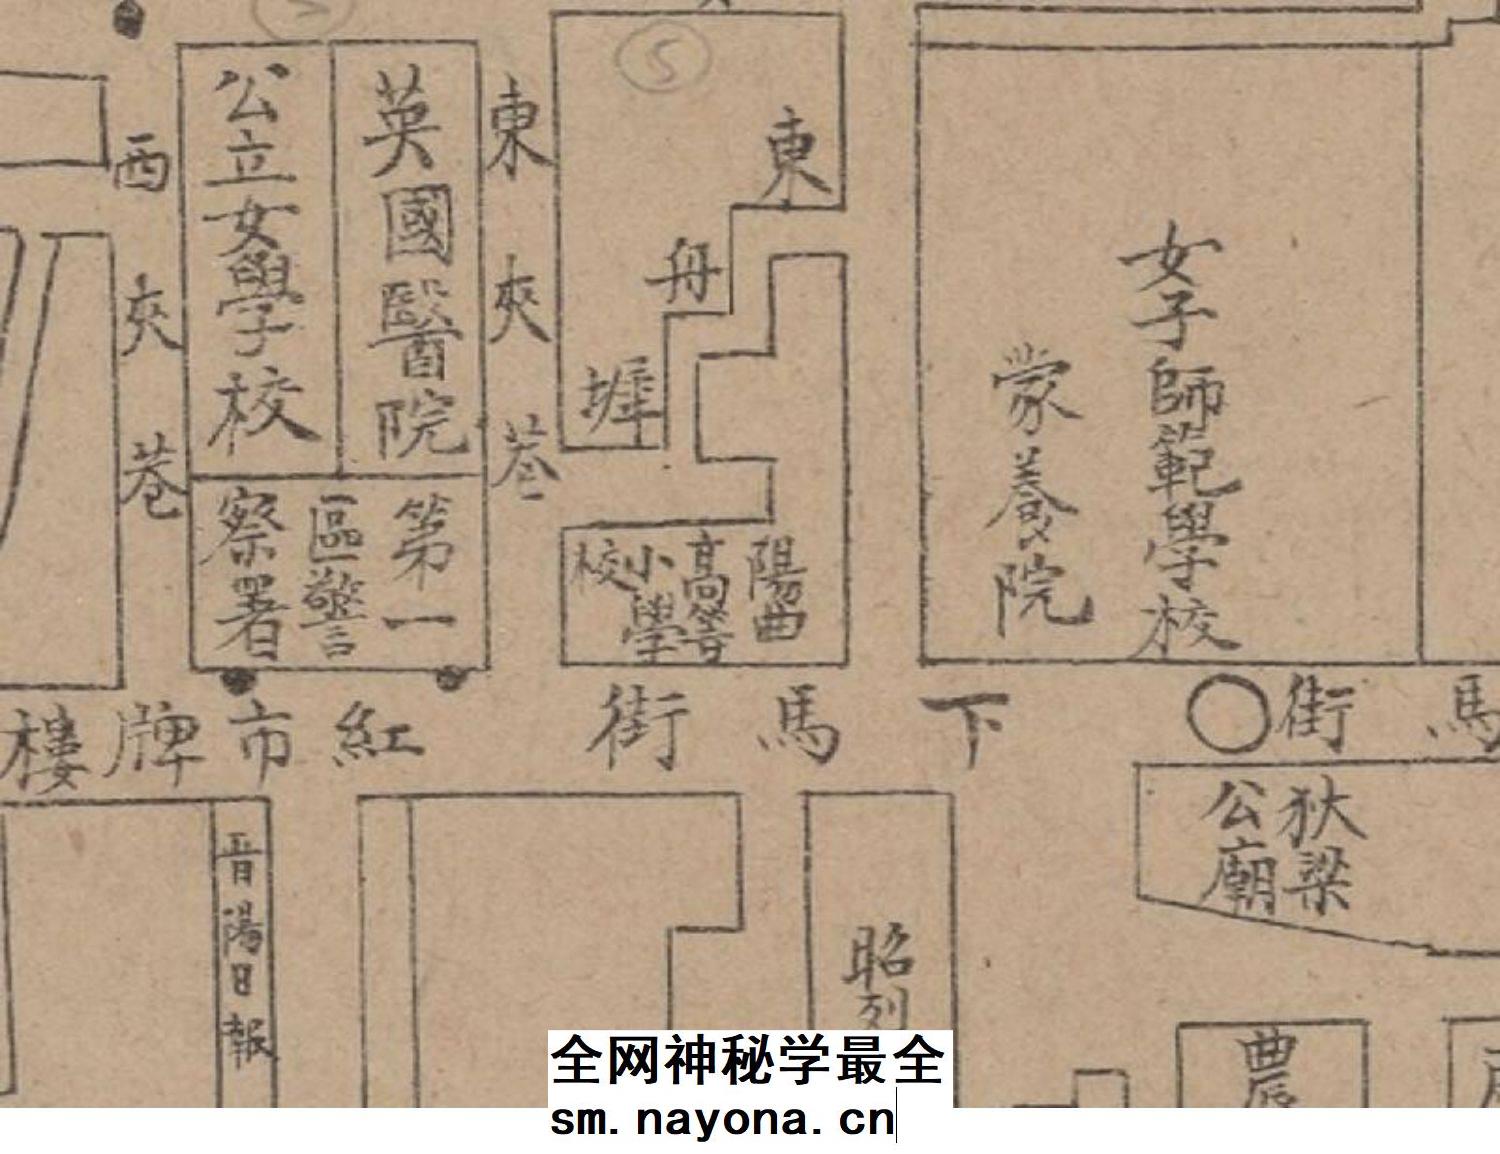 西夾巷
公立女學校
英國醫院
東夾巷
第一
區警
察署
東舟墀
陽曲
高等
小學
校
女子師範學校
蒙養院
樓牌市紅
街馬下
街馬
狄梁
公廟
晉陽日報
昭列
農
5
全网神秘学最全
sm.nayona.cn